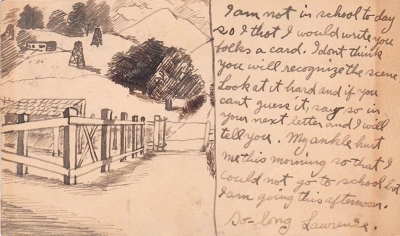 I am not in school to day
so I that I would write you
folks a card. I dont think
you will recognize the scene
Look at it hard and if you
cant guess it, say so in
your next letter and I will
tell you. My ankle hurt
me this morning so that I
could not go to school but
I am going this afternoon.
So-long Lawrence.